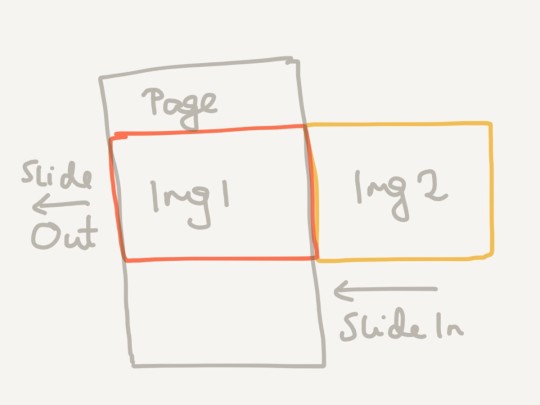 Page
Slide
Out
Img 1
Img 2
Slide In